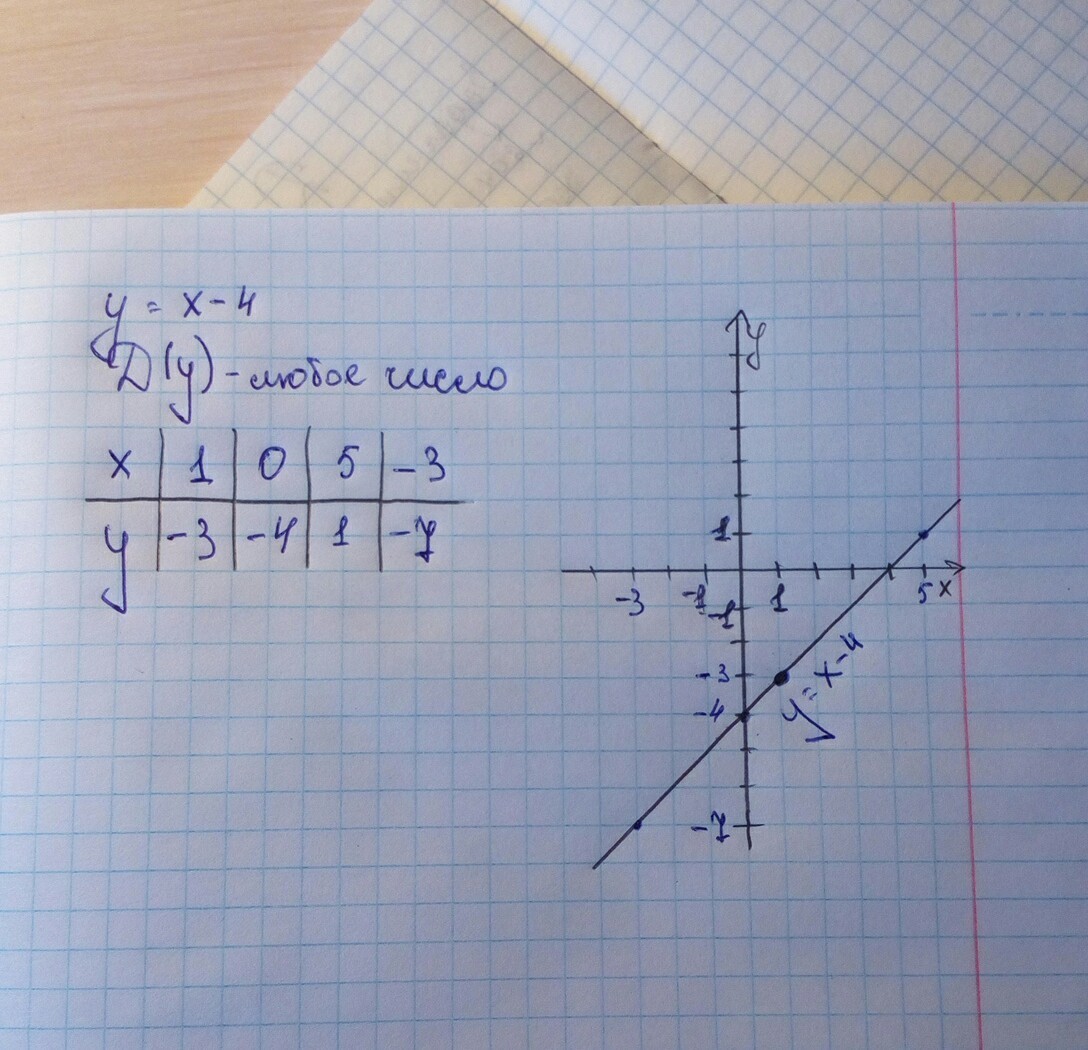 y = x - 4
D(y) - любое число
x | 1 | 0 | 5 | -3
y | -3 | -4 | 1 | -7
y
1
-3 -1 1 5 x
-1
-3
-4
y = x - 4
-7